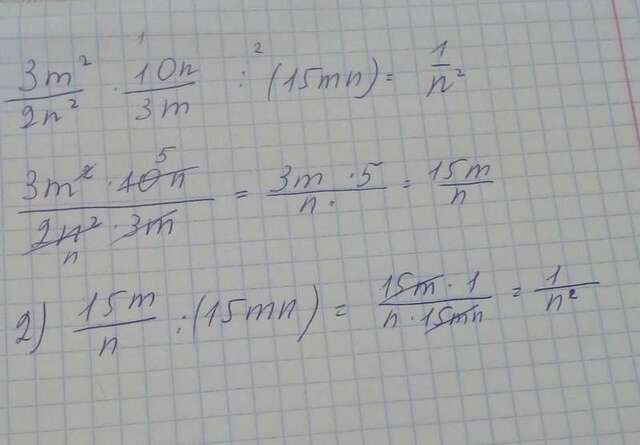 3m²/2n² ·¹ 10n/3m :² (15mn) = 1/n²
3m² · 10n/2n² · 3m = 3m · 5/n · = 15m/n
5
n
2) 15m/n : (15mn) = 15m · 1/n · 15mn = 1/n²